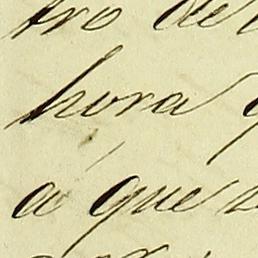 tro de
hora
á que